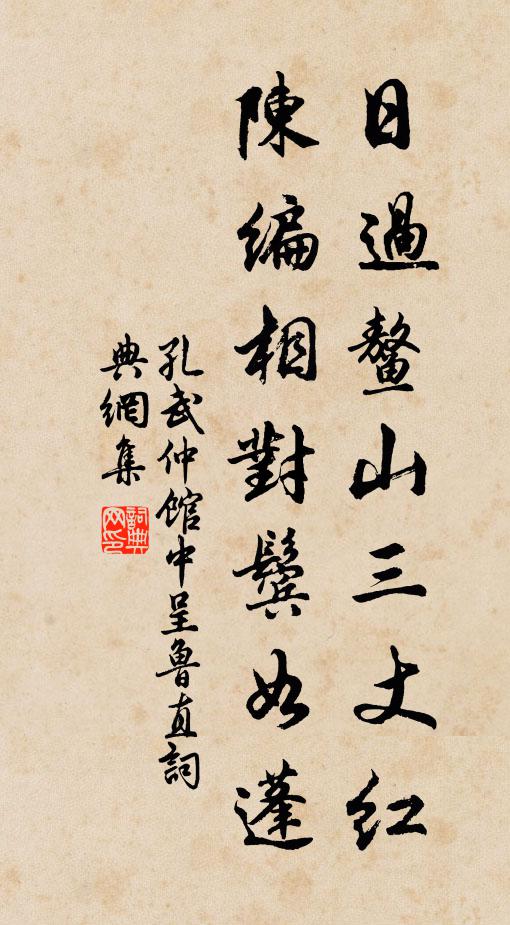 日過鼇山三丈紅
陳編相對鬢如蓬
孔武仲館中呈魯直詞
典網集
詞典網印